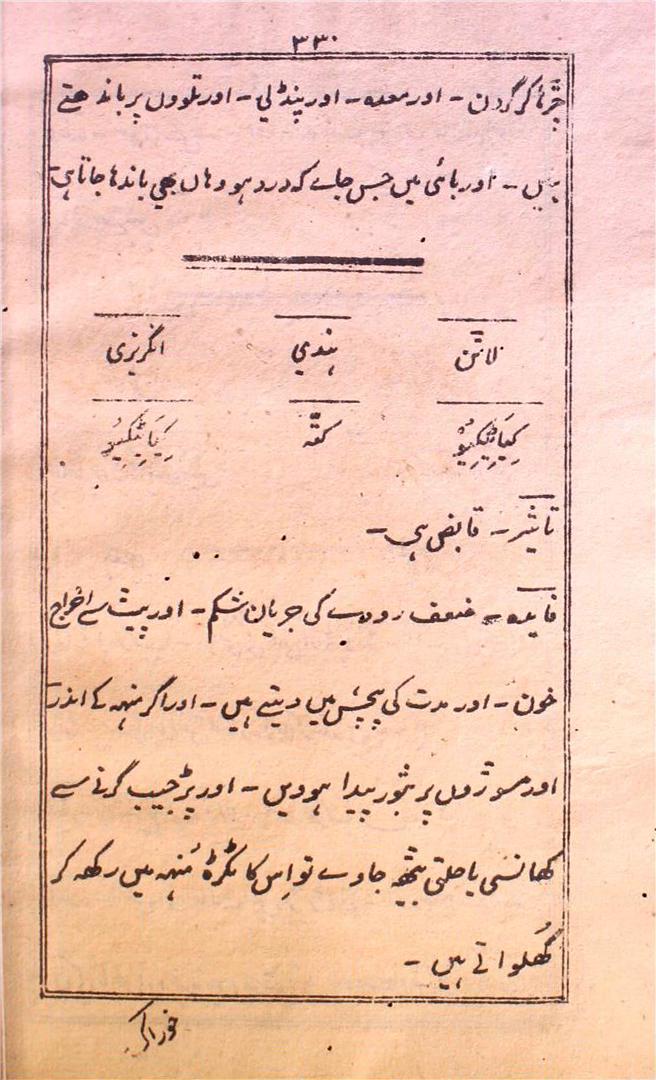 ۳۳۰
چڑہا کر گردن - اور معدہ - اور پنڈلی - اور تلووں پر باندھتے
ہیں - اور بائی میں جس جاے کہ درد ہو وہاں بھی باندہا جاتا ہی
لاٹن ہندی انگریزی
کتّہ
تاثیر - قابض ہی -
فایدہ - ضعف رودے کی جریان شکم - اور پیٹ سے اخراج
خون - اور مدت کی پیچش میں دیتے ہیں - اور اگر منہہ کے اندر
اور مسوڑوں پر بثور پیدا ہوویں - اور پڑجیب گرنے سے
کھانسی یا حلق بیٹھ جاوے تو اِس کا ٹکڑہ مُنہہ میں رکھہ کر
گُھلواتے ہیں -
خوراک